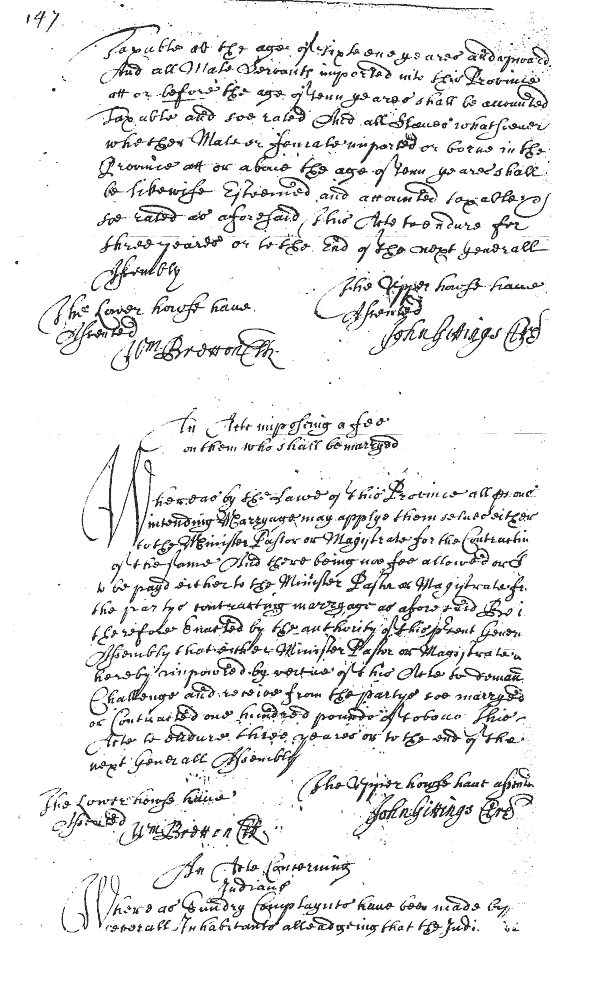 147
Taxable att the age of sixteene yeares and upward
And all Male Servants imported into this Province
att or before the age of tenn yeares shall be accounted
Taxable and soe rated And all Slaves whatsoever
whether Male or female imported or borne in the
Province att or above the age of tenn yeares shall
be likewise Esteemed and accounted taxable &
soe rated as aforesaid, This Acte to endure for
three yeares or to the End of the next generall
Assembly
The Lower howse have
Assented
Wm Bretton Clk
The Upper howse have
Assented
John Gittings Clk
An Acte imposing a fee
on them who shall be marryed
Whereas by the Lawe of this Province all
intending Marryage may applye them selves either
to the Minister Pastor or Magistrate for the Contractin
of the same And there being noe fee allowed or
to be payd either to the Minister Pastor or Magistrate fr
the partys contracting marryage as aforesaid Be i
therefore Enacted by the authority of this present Gener
Assembly that either Minister Pastor or Magistrate
hereby impowred by vertue of this Acte to deman
Challenge and receive from the partys soe marryed
or Contracted one hundred pounds of tobacco This
Acte to endure three yeares or to the end of the
next Generall Assembly
The Lower howse have
Assented
Wm Bretton Clk
The Upper howse have assen
John Gittings Clk
An Acte Concerning
Indians
Whereas Sundry Complaynts have been made by
severall Inhabitants alleadgeing that the Indi